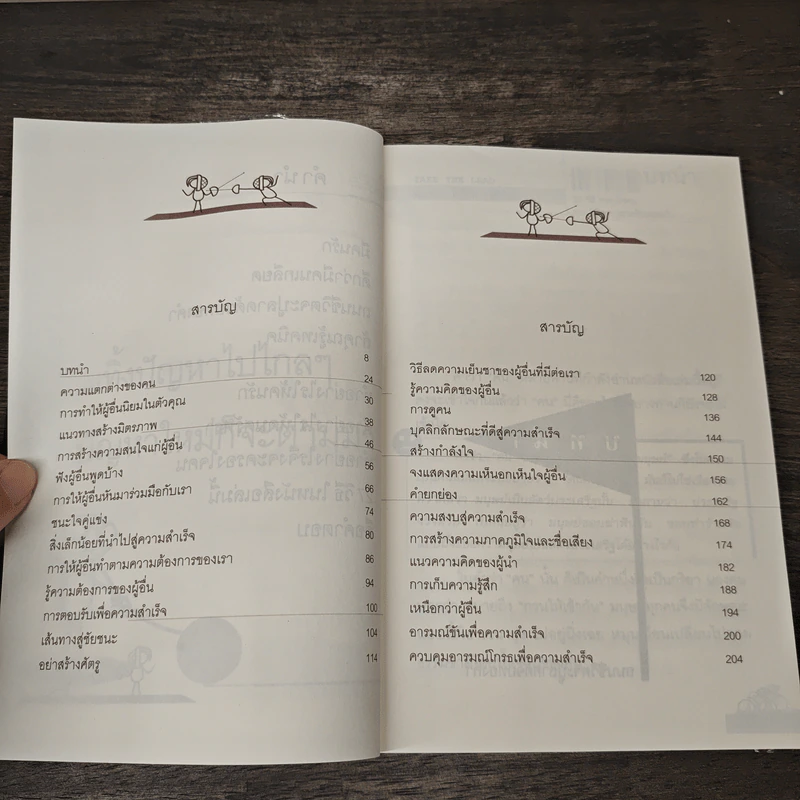 สารบัญ
บทนำ 8
ความแตกต่างของคน 24
การทำให้ผู้อื่นนิยมในตัวคุณ 30
แนวทางสร้างมิตรภาพ 38
การสร้างความสนใจแก่ผู้อื่น 46
ฟังผู้อื่นพูดบ้าง 56
การให้ผู้อื่นหันมาร่วมมือกับเรา 66
ชนะใจคู่แข่ง 74
สิ่งเล็กน้อยที่นำไปสู่ความสำเร็จ 80
การให้ผู้อื่นทำตามความต้องการของเรา 86
รู้ความต้องการของผู้อื่น 94
การตอบรับเพื่อความสำเร็จ 100
เส้นทางสู่ชัยชนะ 104
อย่าสร้างศัตรู 114
สารบัญ
วิธีลดความเย็นชาของผู้อื่นที่มีต่อเรา 120
รู้ความคิดของผู้อื่น 128
การดูคน 136
บุคลิกลักษณะที่ดีสู่ความสำเร็จ 144
สร้างกำลังใจ 150
จงแสดงความเห็นอกเห็นใจผู้อื่น 156
คำยกย่อง 162
ความสงบสู่ความสำเร็จ 168
การสร้างความภาคภูมิใจและชื่อเสียง 174
แนวความคิดของผู้นำ 182
การเก็บความรู้สึก 188
เหนือกว่าผู้อื่น 194
อารมณ์ขันเพื่อความสำเร็จ 200
ควบคุมอารมณ์โกรธเพื่อความสำเร็จ 204